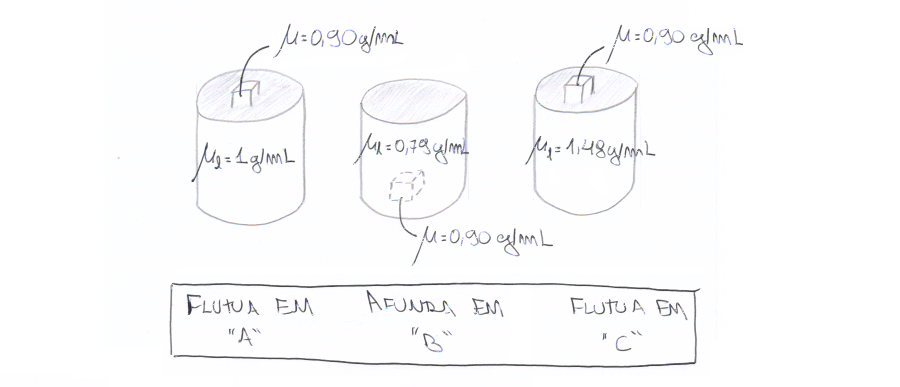 μ=0,90g/mL
μ=0,90 g/mL
μl=1g/mL
μl=0,79g/mL
μl=1,48g/mL
μ=0,90 g/mL
FLUTUA EM "A"
AFUNDA EM "B"
FLUTUA EM "C"